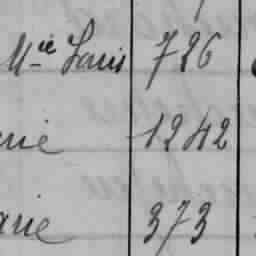 Mie Louis 726
rie 1242
arie 373